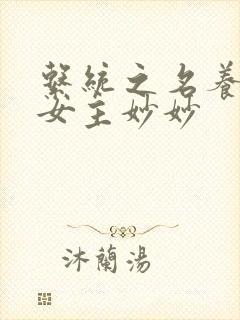 繫統之名養
女主妙妙
沐蘭湯